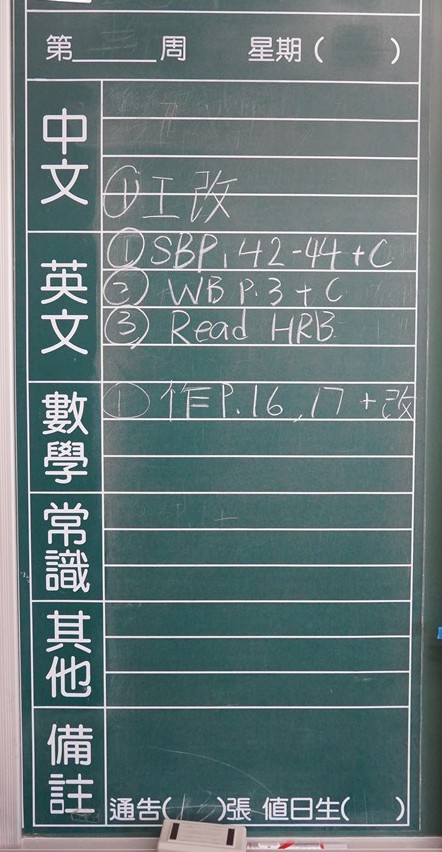 第______周 星期( )
中文
①工改
英文
①SBP.42-44+C
② WB P.3+C
③ Read HRB
數學
① 作P.16,17+改
常識
其他
備註
通告( )張 值日生( )